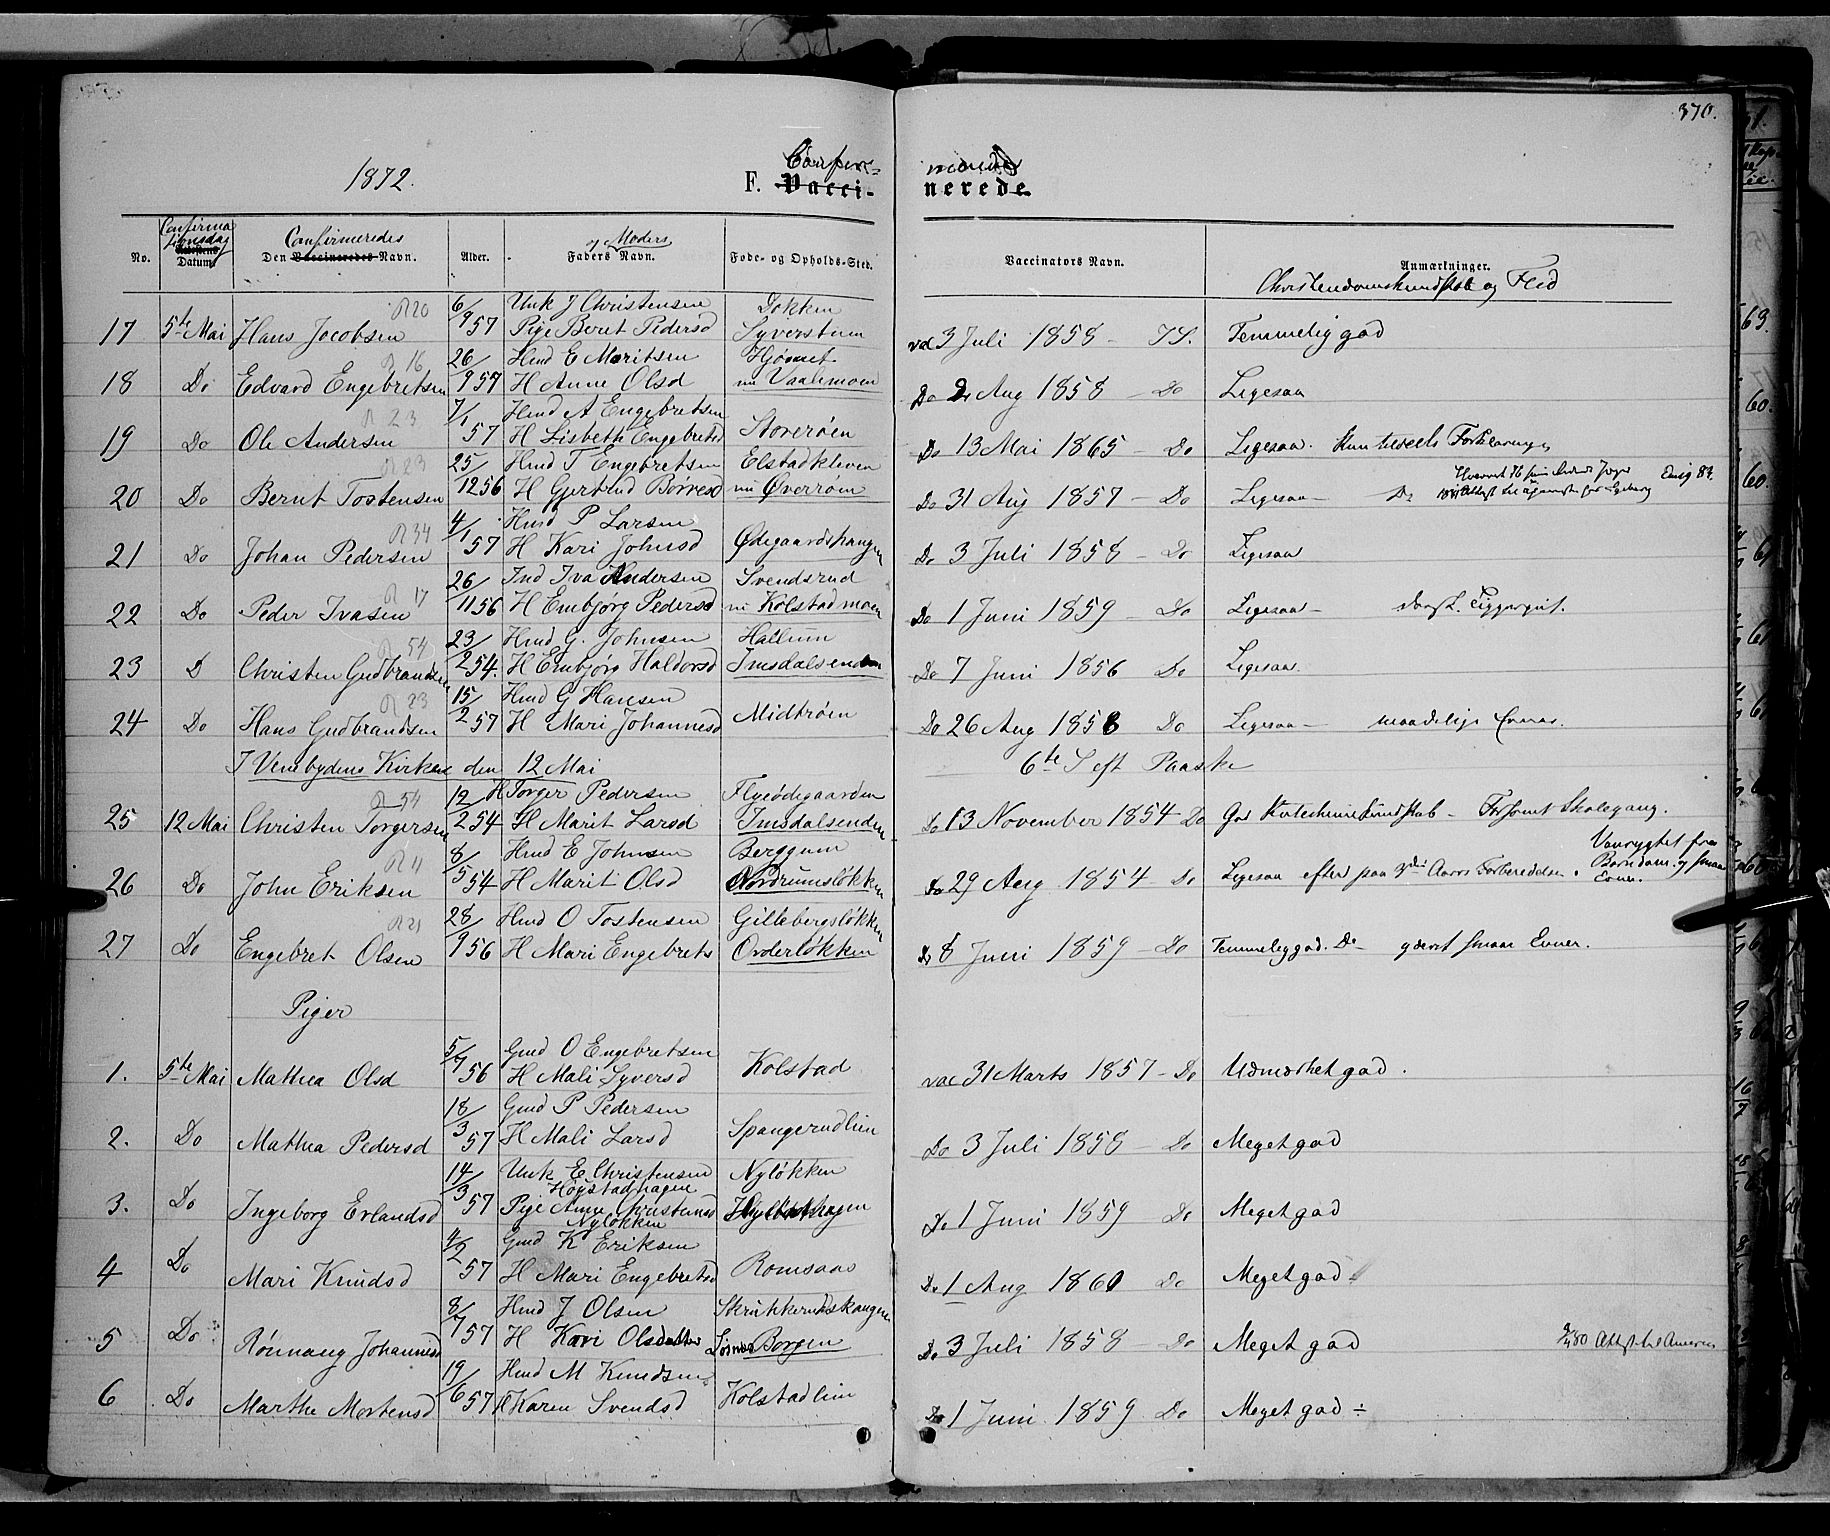 370.
1872.
Confir=
merede
F. Vacci-
nerede.
No.
Confirma
tionsdag
Datum.
Confirmeredes
Den Vaccineredes Navn.
Alder.
og Moders
Faders Navn.
Føde- og Opholds-Sted.
Vaccinators Navn.
Anmærkninger.
Christendomskundskab og Flid
17 5te Mai Hans Jacobsen 6/9 57 Unk J Christensen Pige Berit Pedersd Dokken Syverstuen vac 3 Juli 1858 - Temmelig god
18 Do Edvard Engebretsen 26/9 57 Hmd E Moritsen H Anne Olsd nu Vaalemoen Do 2 Aug 1858 - Do Ligesaa
19 Do Ole Andersen 7/1 57 Hmd A Engebretsen H Lisbeth Engebretsd Storerøen Do 13 Mai 1865 - Do Ligesaa. Forklaringen
20 Do Bernt Tostensen 25/12 56 Hmd T Engebretsen H Gjertrud Børresd Elstadkleven nu Øverrøen Do 31 Aug 1857 - Do Ligesaa - Do
21 Do Johan Pedersen 4/1 57 Hmd P Larsen H Kari Johnsd Ødegaardshaugen Do 3 Juli 1858 - Do Ligesaa
22 Do Peder Ivasen 26/11 56 Ind Iva Andersen H Embjørg Pedersd Svendsrud nu Kolstadmoen Do 1 Juni 1859 - Do Ligesaa -
23 D Christen Gudbrandsen 23/2 54. Hmd G. Johnsen H Embjørg Haldorsd Hallum Imsdalsenden Do 7 Juni 1856 Do Ligesaa.
24 Do Hans Gudbrandsen 15/2 57 Hmd G Hansen H Mari Johannesd Midtrøen Do 26 Aug 1858 Do Ligesaa - maadelige Evner.
I Venebygdens Kirke den 12 Mai 6te S eft Paaske
25 12 Mai Christen Torgersen 12/2 54 Torger Pedersen H Marit Larsd Flyeødegaarden Imsdalsenden Do 13 November 1854 Do God Katechismekundskab - Forsømt Skolegang.
26 Do John Eriksen 8/5 54 Hmd E Johnsen H Marit Olsd Berggum Nordrumsløkken Do 29 Aug 1854 - Do Ligesaa efter paa 3die Aars Forberedelse. Vanrygtet fra Barndom og smaa Evner.
27 Do Engebret Olsen 28/9 56 Hmd O Tostensen H Mari Engebrets Gillebergsløkken Do 8 Juni 1859 - Do Temmelig god. Do - smaa Evner.
Piger
1. 5te Mai Mathea Olsd 5/7 56 Gmd O Engebretsen H Mali Syversd Kolstad vac 31 Marts 1857 - Do Udmærket god.
2. Do Mathea Pedersd 18/3 57 Gmd P Pedersen H Mali Larsd Spangerudlien Do 3 Juli 1858 - Do Meget god
3. Do Ingeborg Erlandsd 14/3 57 Unk E Christensen Høystadhagen Pige Anne Christensd Nyløkken Nyløkken Do 1 Juni 1859 Do Meget god
4 Do Mari Knudsd 4/2 57 Gmd K Eriksen H Mari Engebretsd Romsaas Do 1 Aug 1860 Do Meget god
5 Do Rønnaug Johannesd 8/7 57 Hmd J Olsen H Kari Olsdatter Skrukkerudshaugen Losnæs Borgen Do 3 Juli 1858 - Do Meget god 80 Attest til Amerika
6 Do Marthe Mortensd 19/6 57 Hmd M Knudsen H Karen Svendsd Kolstadlien Do 1 Juni 1859 Do Meget god ÷